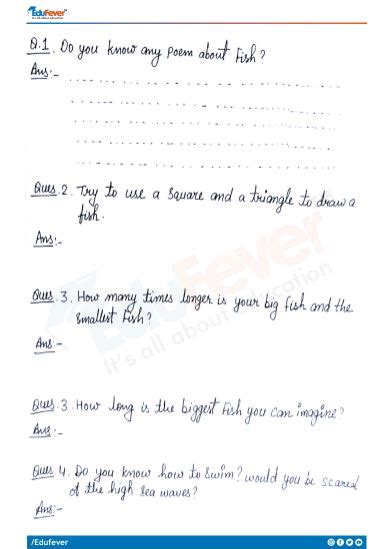 EduFever
It's all about education
Q.1. Do you know any poem about Fish?
Ans:-
Ques.2. Try to use a square and a triangle to draw a
fish.
Ans:-
EduFever
It's all about education
Ques.3. How many times longer is your big fish and the
smallest Fish?
Ans:-
Ques.3. How long is the biggest Fish you can imagine?
Ans:-
Ques 4. Do you know how to swim? would you be scared
of the high sea waves?
Ans:-
/Edufever